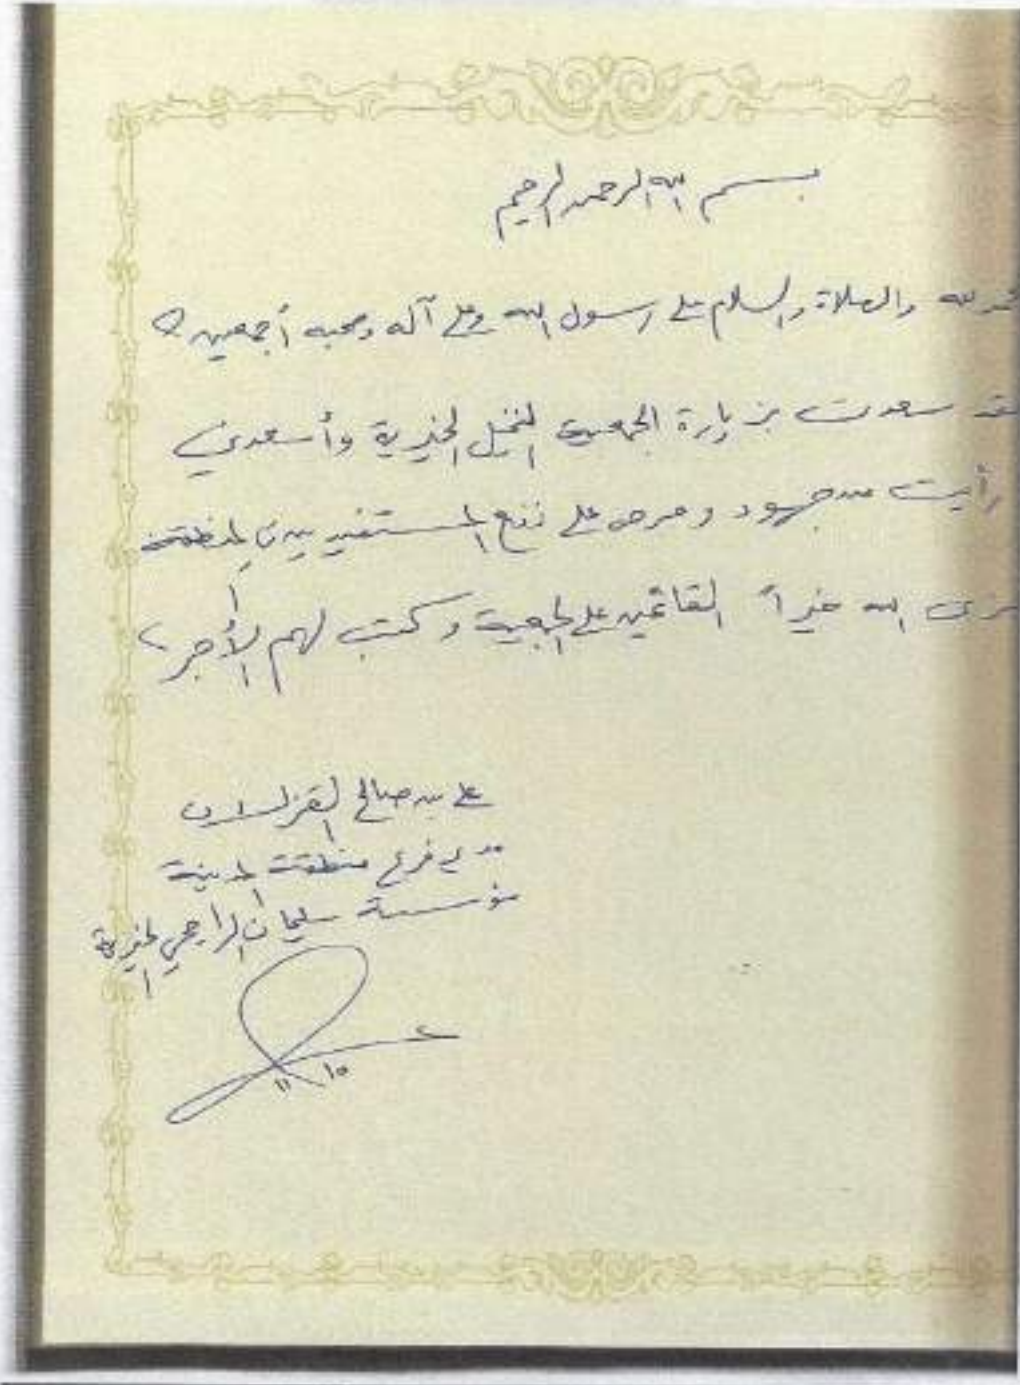 بسم الله الرحمن الرحيم
لله والصلاة والسلام على رسول الله وعلى آله وصحبه أجمعين
سعدت بزيارة الجمعية النخيل الخيرية وأسعدني
رأيت من جهود وحرص على نفع المستفيدين بالمنطقة
الله خيراً القائمين على الجمعية وكتب لهم الأجر
علي بن صالح
مدير فرع منطقة المدينة
مؤسسة سليمان الراجحي الخيرية